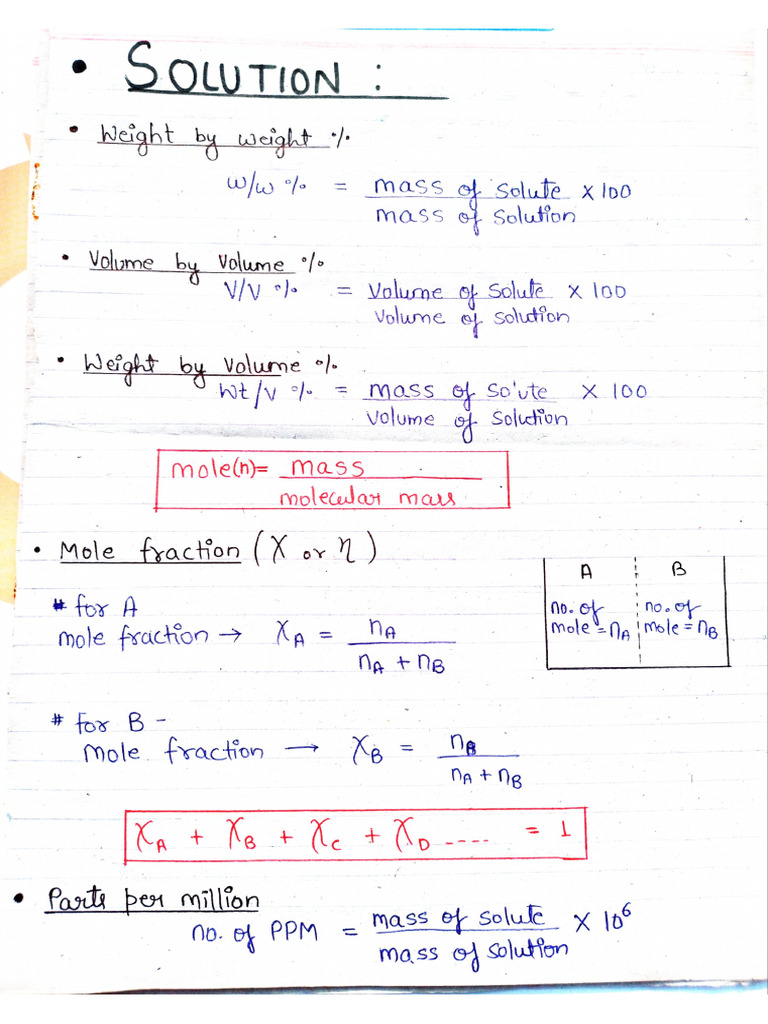 • SOLUTION :
• Weight by weight %
w/w % = mass of solute / mass of solution × 100
• Volume by Volume %
V/V % = Volume of solute / Volume of solution × 100
• Weight by Volume %
Wt/V % = mass of so'ute / Volume of solution × 100
mole(n) = mass / molecular mass
• Mole fraction (χ or η)
A B
no. of mole = nA
no. of mole = nB
# for A
mole fraction → χA = nA / nA + nB
# for B -
Mole fraction → χB = nB / nA + nB
χA + χB + χC + χD ---- = 1
• Parts per million
no. of PPM = mass of solute / mass of solution × 10⁶